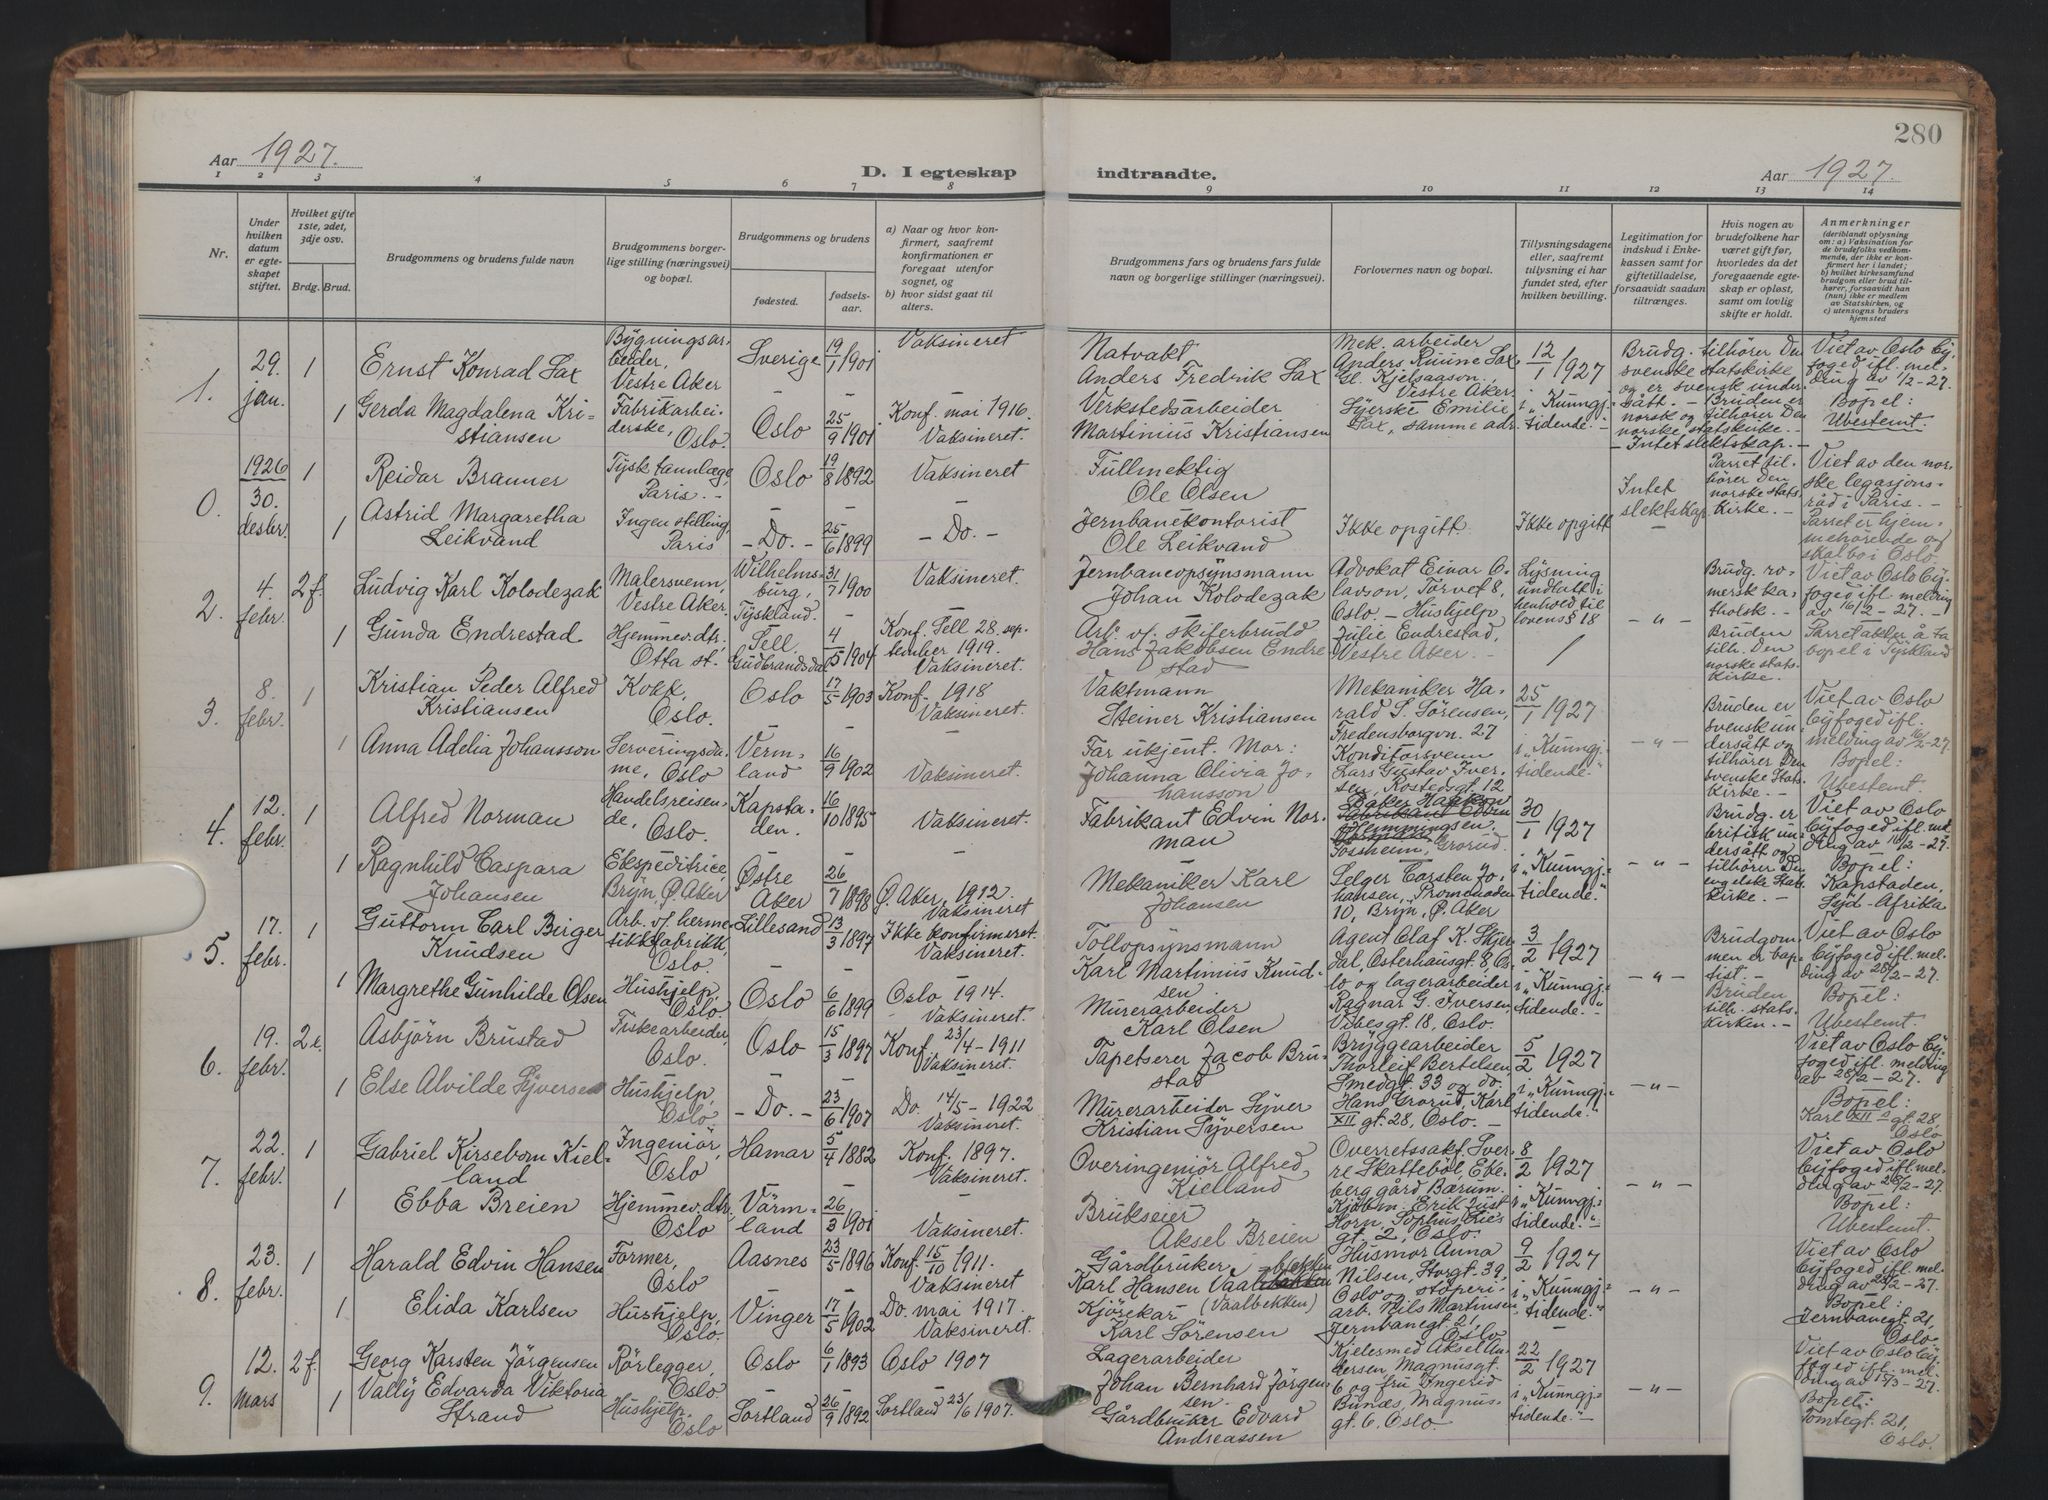 280
Aar 1927.
D. I egteskap indtraadte.
Aar 1927.
1 2 3 4 5 6 7 8 9 10 11 12 13 14
Nr.
Under hvilken datum er egteskapet stiftet.
Hvilket gifte 1ste, 2det, 3dje osv.
Brdg. Brud.
Brudgommens og brudens fulde navn
Brudgommens borgerlige stilling (næringsvei) og bopæl.
Brudgommens og brudens
fødested.
fødselsaar.
a) Naar og hvor konfirmert, saafremt konfirmationen er foregaat utenfor sognet, og
b) hvor sidst gaat til alters.
Brudgommens fars og brudens fars fulde navn og borgerlige stillinger (næringsvei).
Forlovernes navn og bopæl.
Tillysningsdagene eller, saafremt tillysning ei har fundet sted, efter hvilken bevilling.
Legitimation for indskud i Enkekassen samt for giftetilladelse, forsaavidt saadan tiltrænges.
Hvis nogen av brudefolkene har været gift før, hvorledes da det foregaaende egteskap er opløst, samt om lovlig skifte er holdt.
Anmerkninger
(deriblandt oplysning om: a) Vaksination for de brudefolks vedkommende, der ikke er konfirmert her i landet; b) hvilket kirkesamfund brudgom eller brud tilhører, forsaavidt han (hun) ikke er medlem av Statskirken, og c) utensogns bruders hjemsted
1.
29. jan.
1
Ernst Konrad Sax
Bygningsarbeider, Vestre Aker
Sverige
19/1 1901.
Vaksineret
Natvakt
Anders Fredrik Sax
Mek. arbeider Anders Ruune Sax Gl. Kjelsaasvn, Vestre Aker.
12/1 1927
Brudg. tilhører Den svenske statskirke og er svensk undersått. - Bruden er norsk og tilhører Den norske statskirke. -
- Intet slektskap. -
Viet av Oslo byfoged ifl. melding av 1/2-27.
Bopel:
Ubestemt.
1
Gerda Magdalena Kristiansen
Fabrikarbeiderske, Oslo.
Oslo
25/9 1901.
Konf. mai 1916.
Vaksineret.
Verkstedsarbeider
Martinius Kristiansen
Syerske Emilie Sax, samme adr.
i "Kunngj.tidende." -
0.
1926
30. desbr.
1
Reidar Branner
Tysk tannlæge, Paris. -
Oslo
19/8 1892
Vaksineret
Fullmektig
Ole Olsen
Intet slektskap
Parret tilhører Den norske statskirke. -
Viet av den norske legasjonsråd i Paris. -
Parret er hjemmehørende og skal bo i Oslo.
1
Astrid Margaretha Leikvand
Ingen stilling, Paris
- Do. -
25/6 1899
- Do. -
Jernbanekontorist
Ole Leikvand
Ikke opgitt.
Ikke opgitt
2.
4. febr.
2 f.
Ludvig Karl Kolodezak
Malersvenn, Vestre Aker.
Wilhelmsburg, Tyskland.
31/7 1900
Vaksineret.
Jernbaneopsynsmann
Johan Kolodezak
Advokat Einar Olavson, Torvet 8, Oslo. - Hushjelp Julie Endrestad, Vestre Aker. -
Lysning undlatt i henhold til lovens § 18
- " -
Brudg. romersk katholsk. -
Bruden tilh. Den norske statskirke.
Viet av Oslo byfoged ifl. melding av 16/2-27. -
Parret akter å ta bopel i Tyskland
1
Gunda Endrestad
Hjemmev. dtr. Otta st.
Sell, Gudbrandsdal
4/5 1904
Konf. Sell 28. september 1919.
Vaksineret.
Arb. v/ skiferbrudd
Hans Jakobsen Endrestad
3.
8. febr.
1
Kristian Peder Alfred Kristiansen
Kokk, Oslo.
Oslo
17/5 1903
Konf. 1918
Vaksineret.
Vaktmann
Steiner Kristiansen
Mekaniker Harald S. Sørensen, Fredensborgvn. 27
25/1 1927
- " -
Bruden er svensk undersått og tilhører Den svenske statskirke. -
Viet av Oslo byfoged ifl. melding av 16/2-27.
Bopel:
Ubestemt.
1
Anna Adelia Johansson
Serveringsdame, Oslo
Vermland
16/9 1902
Vaksineret.
Far ukjent. Mor: Johanna Olivia Johansson
Konditorsvenn Lars Gustav Iversen, Rostedsgt. 12
i "Kunngj.tidende."
4.
12. febr.
1
Alfred Norman
Handelsreisende, Oslo.
Kapstaden.
16/10 1895
Vaksineret.
Fabrikant Edvin Norman
Baker Haakon Flemmingsen, Grorud.
30/1 1927
- " -
Brudg. er britisk undersått og tilhører Den engelske statskirke. -
Viet av Oslo byfoged ifl. melding av 16/2-27.
Bopel:
Kapstaden, Syd-Afrika
1
Ragnhild Caspara Johansen
Ekspeditrice, Bryn, Ø. Aker
Østre Aker
26/7 1898
Ø. Aker, 1912.
Vaksineret
Mekaniker Karl Johansen
Selger Torsten Johansen, Promenaden 10, Bryn, Ø. Aker
i "Kunngj.tidende."
5.
17. febr.
1
Guttorm Carl Birger Knudsen
Arb. v/ hermetikkfabrikk, Oslo.
Lillesand
13/3 1897
Ikke konfirmeret.
Vaksineret.
Tollopsynsmann
Karl Martinius Knudsen.
Agent Olaf K. Skjersal, Osterhausgt. 8, Oslo og lagerarbeider Ragnar G. Iversen, Vibesgt. 18, Oslo.
3/2 1927
i "Kunngj.tidende."
- " -
Brudgommen er baptist. -
Bruden tilh. statskirken. -
Viet av Oslo byfoged ifl. melding av 28/2-27.
Bopel:
Ubestemt.
1
Margrethe Gunhilde Olsen
Hushjelp, Oslo.
Oslo
6/6 1899
Oslo 1914.
Vaksineret.
Murerarbeider
Karl Olsen
6.
19. febr.
2 e.
Asbjørn Brustad
Fiskearbeider, Oslo.
Oslo
15/3 1897
Konf. 23/4-1911
Vaksineret.
Tapetserer Jacob Brustad
Bryggearbeider Thorleif Bertelsen, Smedgt. 33 og do. Hans Grorud, Karl XII gt. 28, Oslo. -
5/2 1927
i "Kunngj.tidende."
- " -
Viet av Oslo byfoged ifl. melding av 28/2-27.
Bopel:
Karl XII's gt. 28, Oslo
1
Else Alvilde Syversen
Hushjelp, Oslo.
- Do. -
23/6 1907
Do. 14/5-1922
Vaksineret.
Murerarbeider Syver Kristian Syversen
7.
22. febr.
1
Gabriel Kirsebom Kielland
Ingeniør, Oslo
Hamar
5/4 1882
Konf. 1897.
Vaksineret.
Overingeniør Alfred Kielland
Overrettssakf. Sverre Skattebøl, Ekeberg gård Bærum. Kjøbm. Erik Just Horn, Sophus Lies gt. 2, Oslo.
8/2 1927
i "Kunngj.tidende."
- " -
Viet av Oslo byfoged ifl. melding av 28/2-27.
Bopel:
Ubestemt.
1
Ebba Breien
Hjemmev. dtr. Oslo
Värmland
26/3 1901
Vaksineret.
Brukseier
Aksel Breien
8.
23. febr.
1
Harald Edvin Hansen
Former, Oslo
Aasnes
23/5 1896
Konf. 15/10 1911.
Vaksineret
Gårdbruker
Karl Hansen Vaalbekken
(Vaalbekken)
Husmor Anna Nilsen, Storgt. 39, Oslo og støperiarb. Nils Martinsen, Jernbanegt. 21, Oslo
9/2 1927
i "Kunngj.tidende."
- " -
Viet av Oslo byfoged ifl. melding av 28/2-27.
Bopel:
Jernbanegt. 21, Oslo.
1
Elida Karlsen
Hushjelp, Oslo.
Vinger
17/5 1902
Do. mai 1917.
Vaksineret.
Kjørekar
Karl Sørensen
9.
12. mars
2 f.
Georg Karsten Jørgensen
Rørlegger, Oslo
Oslo
6/1 1893
Oslo 1907
Lagerarbeider
Johan Bernhard Jørgensen.
Kjelesmed Aksel Andersen, Magnusgt. 6 og fru Ingerid Bunæs, Magnusgt. 6, Oslo.
22/2 1927
i "Kunngj.tidende."
- " -
Viet av Oslo byfoged ifl. melding av 15/3-27.
Bopel:
Tomtegt. 21, Oslo.
1
Vally Edvarda Viktoria Strand
Hushjelp, Oslo
Sortland
26/9 1892
Sortland 23/6 1907.
Gårdbruker Edvard Andreassen